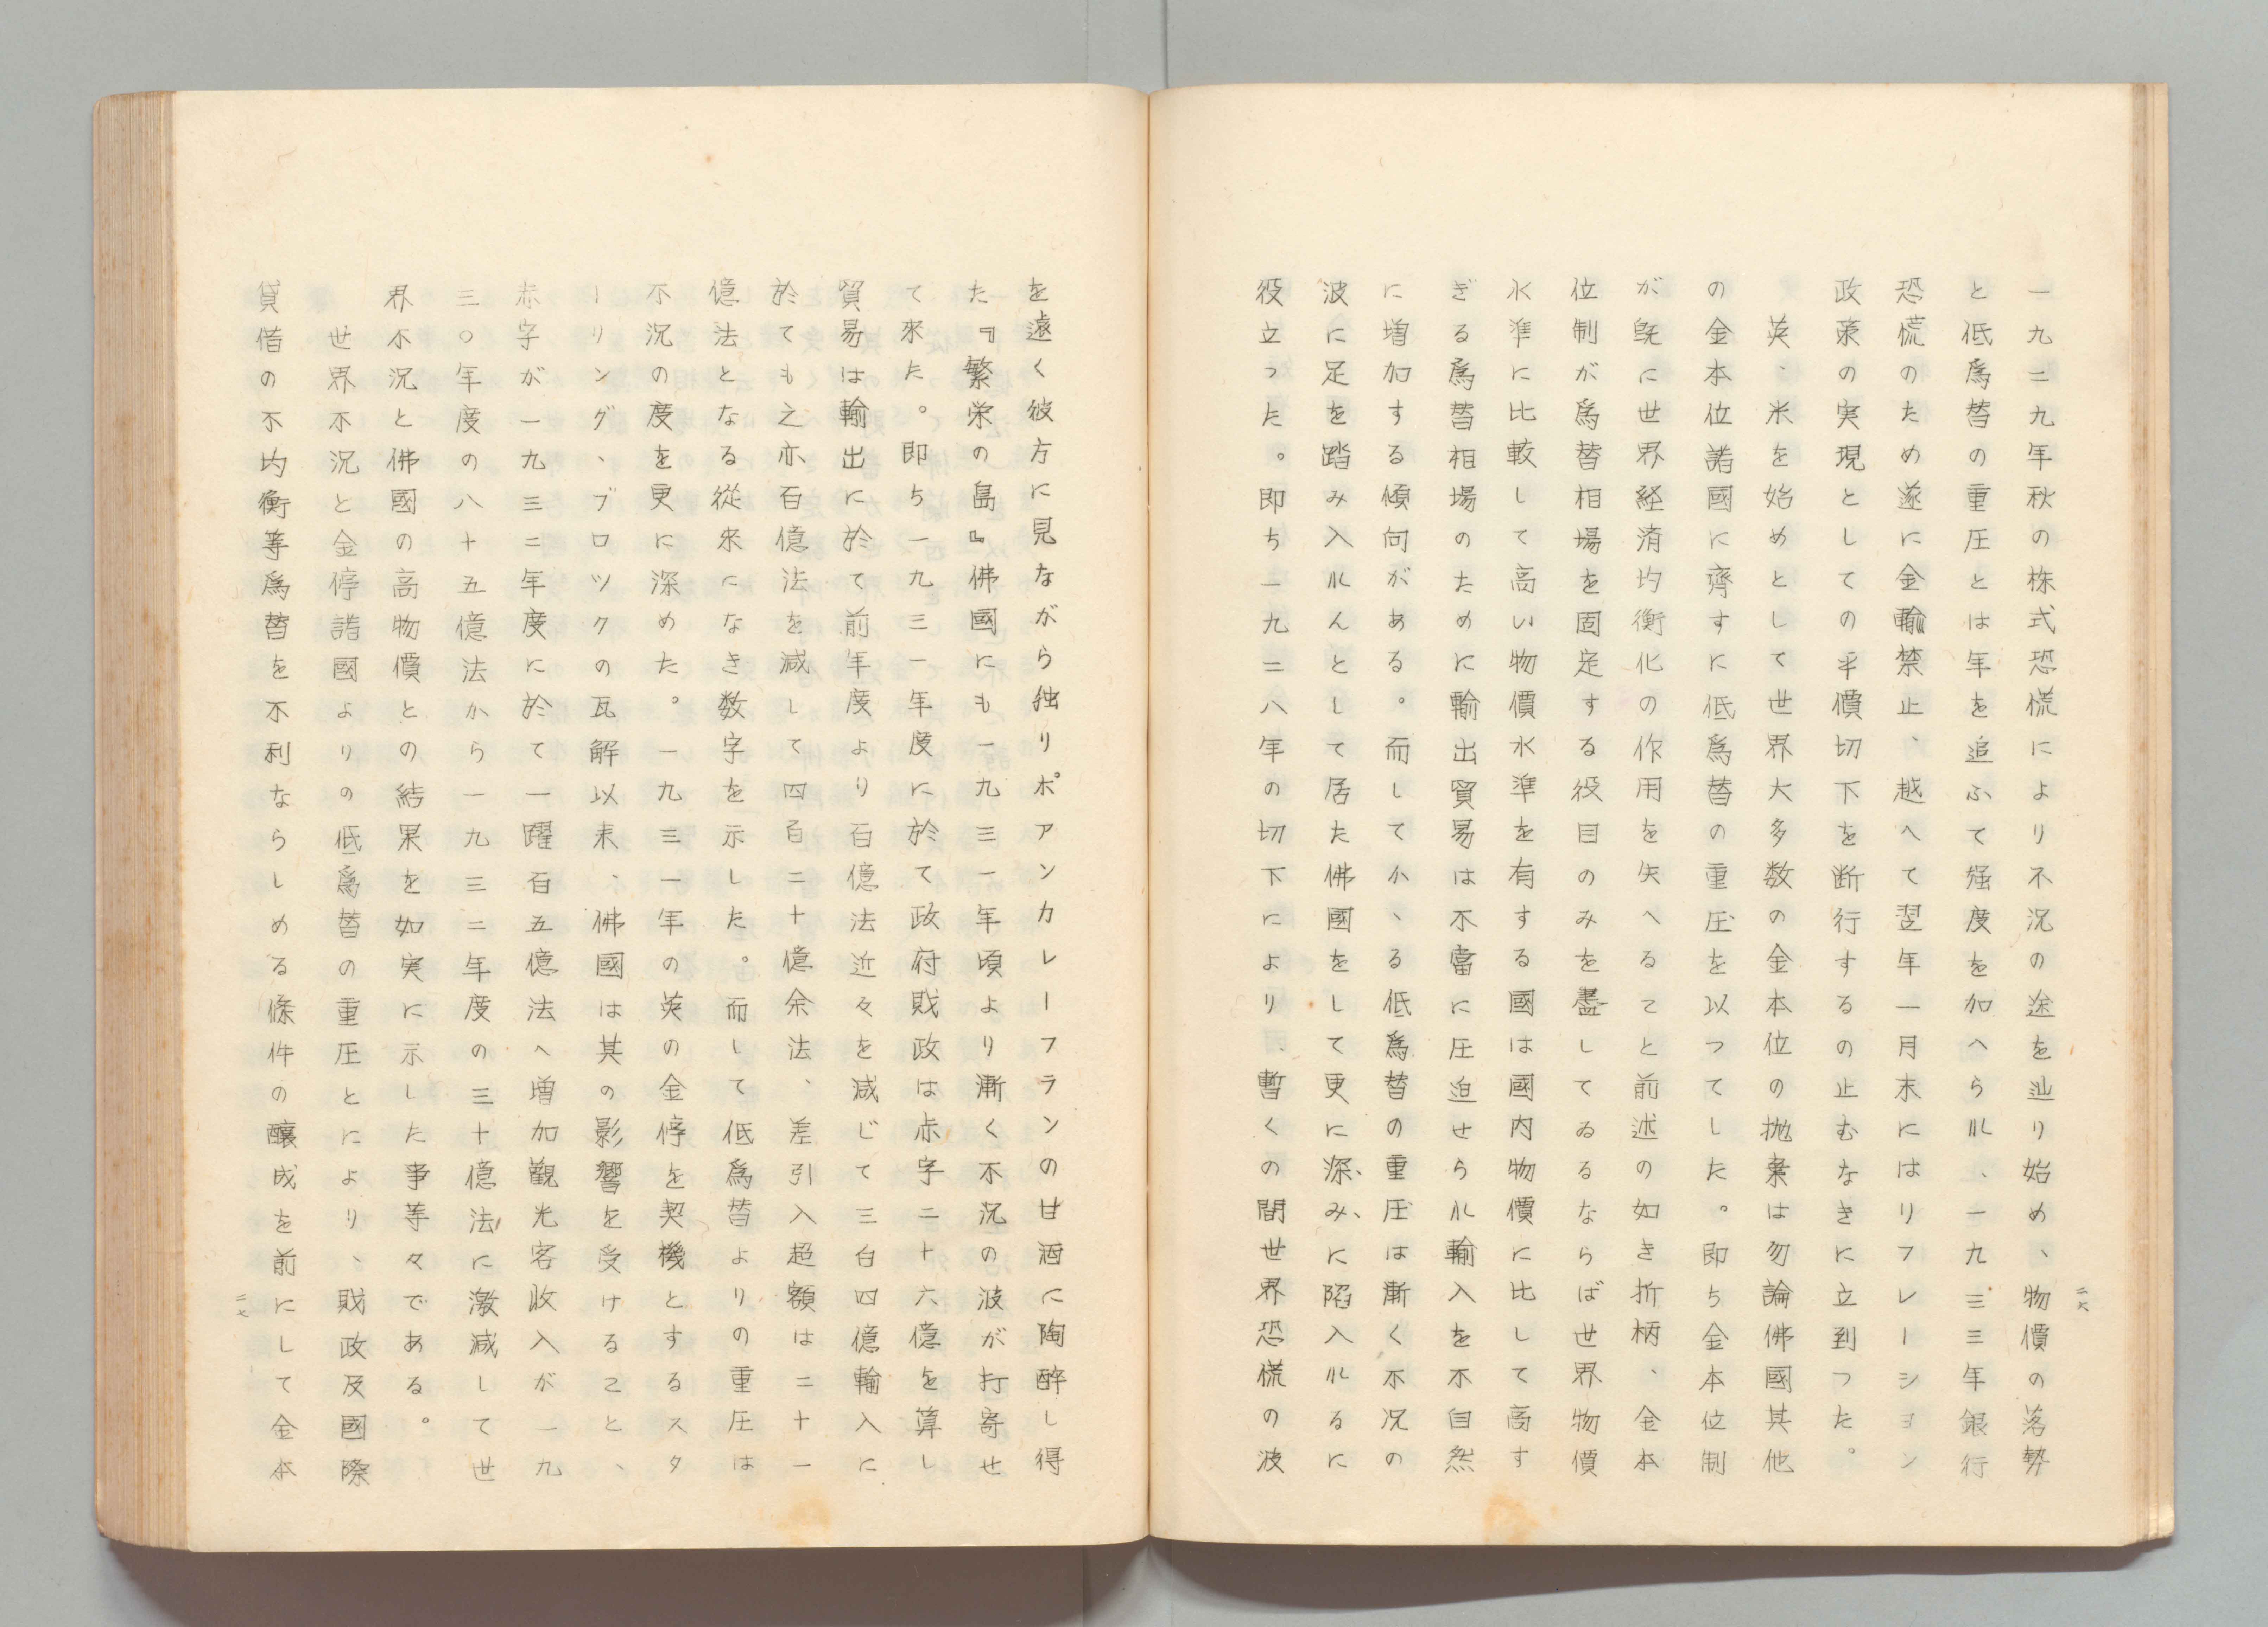 一九二九年秋の株式恐慌により不況の途を辿り始め、物價の落勢
と低爲替の重圧とは年を追ふて強度を加へられ、一九三三年銀行
恐慌のため遂に金輸禁止、越へて翌年一月末にはリフレーション
政策の実現としての平價切下を断行するの止むなきに立到つた。
英、米を始めとして世界大多数の金本位の抛棄は勿論佛國其他
の金本位諸國に齊すに低爲替の重圧を以つてした。即ち金本位制
が既に世界経済均衡化の作用を失へること前述の如き折柄、金本
位制が爲替相場を固定する役目のみを盡してゐるならば世界物價
水準に比較して高い物價水準を有する國は國内物價に比して高す
ぎる爲替相場のために輸出貿易は不當に圧迫せられ輸入を不自然
に増加する傾向がある。而してかゝる低爲替の重圧は漸く不況の
波に足を踏み入れんとして居た佛國をして更に深みに陷入れるに
役立つた。即ち一九二八年の切下により、暫くの間世界恐慌の波
二六
を遠く彼方に見ながら独りポアンカレーフランの甘酒に陶酔し得
た『繁栄の島』佛國にも一九三一年頃より漸く不況の波が打寄せ
て來た。即ち一九三一年度に於て政府財政は赤字二十六億を算し
貿易は輸出に於て前年度より百億法近々を減じて三百四億輸入に
於ても之亦百億法を減して四百二十億余法、差引入超額は二十一
億法となる從來になき数字を示した。而して低爲替よりの重圧は
不況の度を更に深めた。一九三一年の英の金停を契機とするスタ
ーリング、ブロックの瓦解以来、佛國は其の影響を受けること、
赤字が一九三二年度に於て一躍百五億法へ増加觀光客收入が一九
三〇年度の八十五億法から一九三二年度の三十億法に激減して世
界不況と佛國の高物價との結果を如実に示した事等々である。
世界不況と金停諸國よりの低爲替の重圧とにより、財政及國際
貸借の不均衡等爲替を不利ならしめる條件の釀成を前にして金本
二七